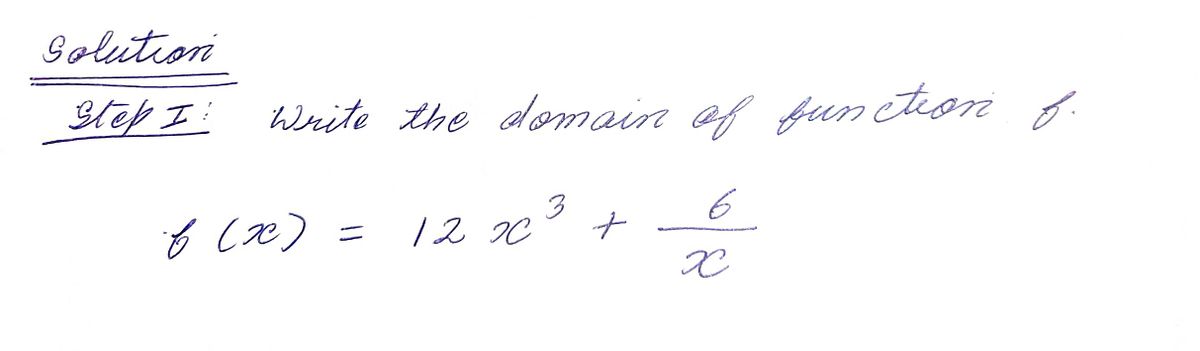 Solution
Step I: Write the domain of function f.
f(x) = 12x³ + 6/x